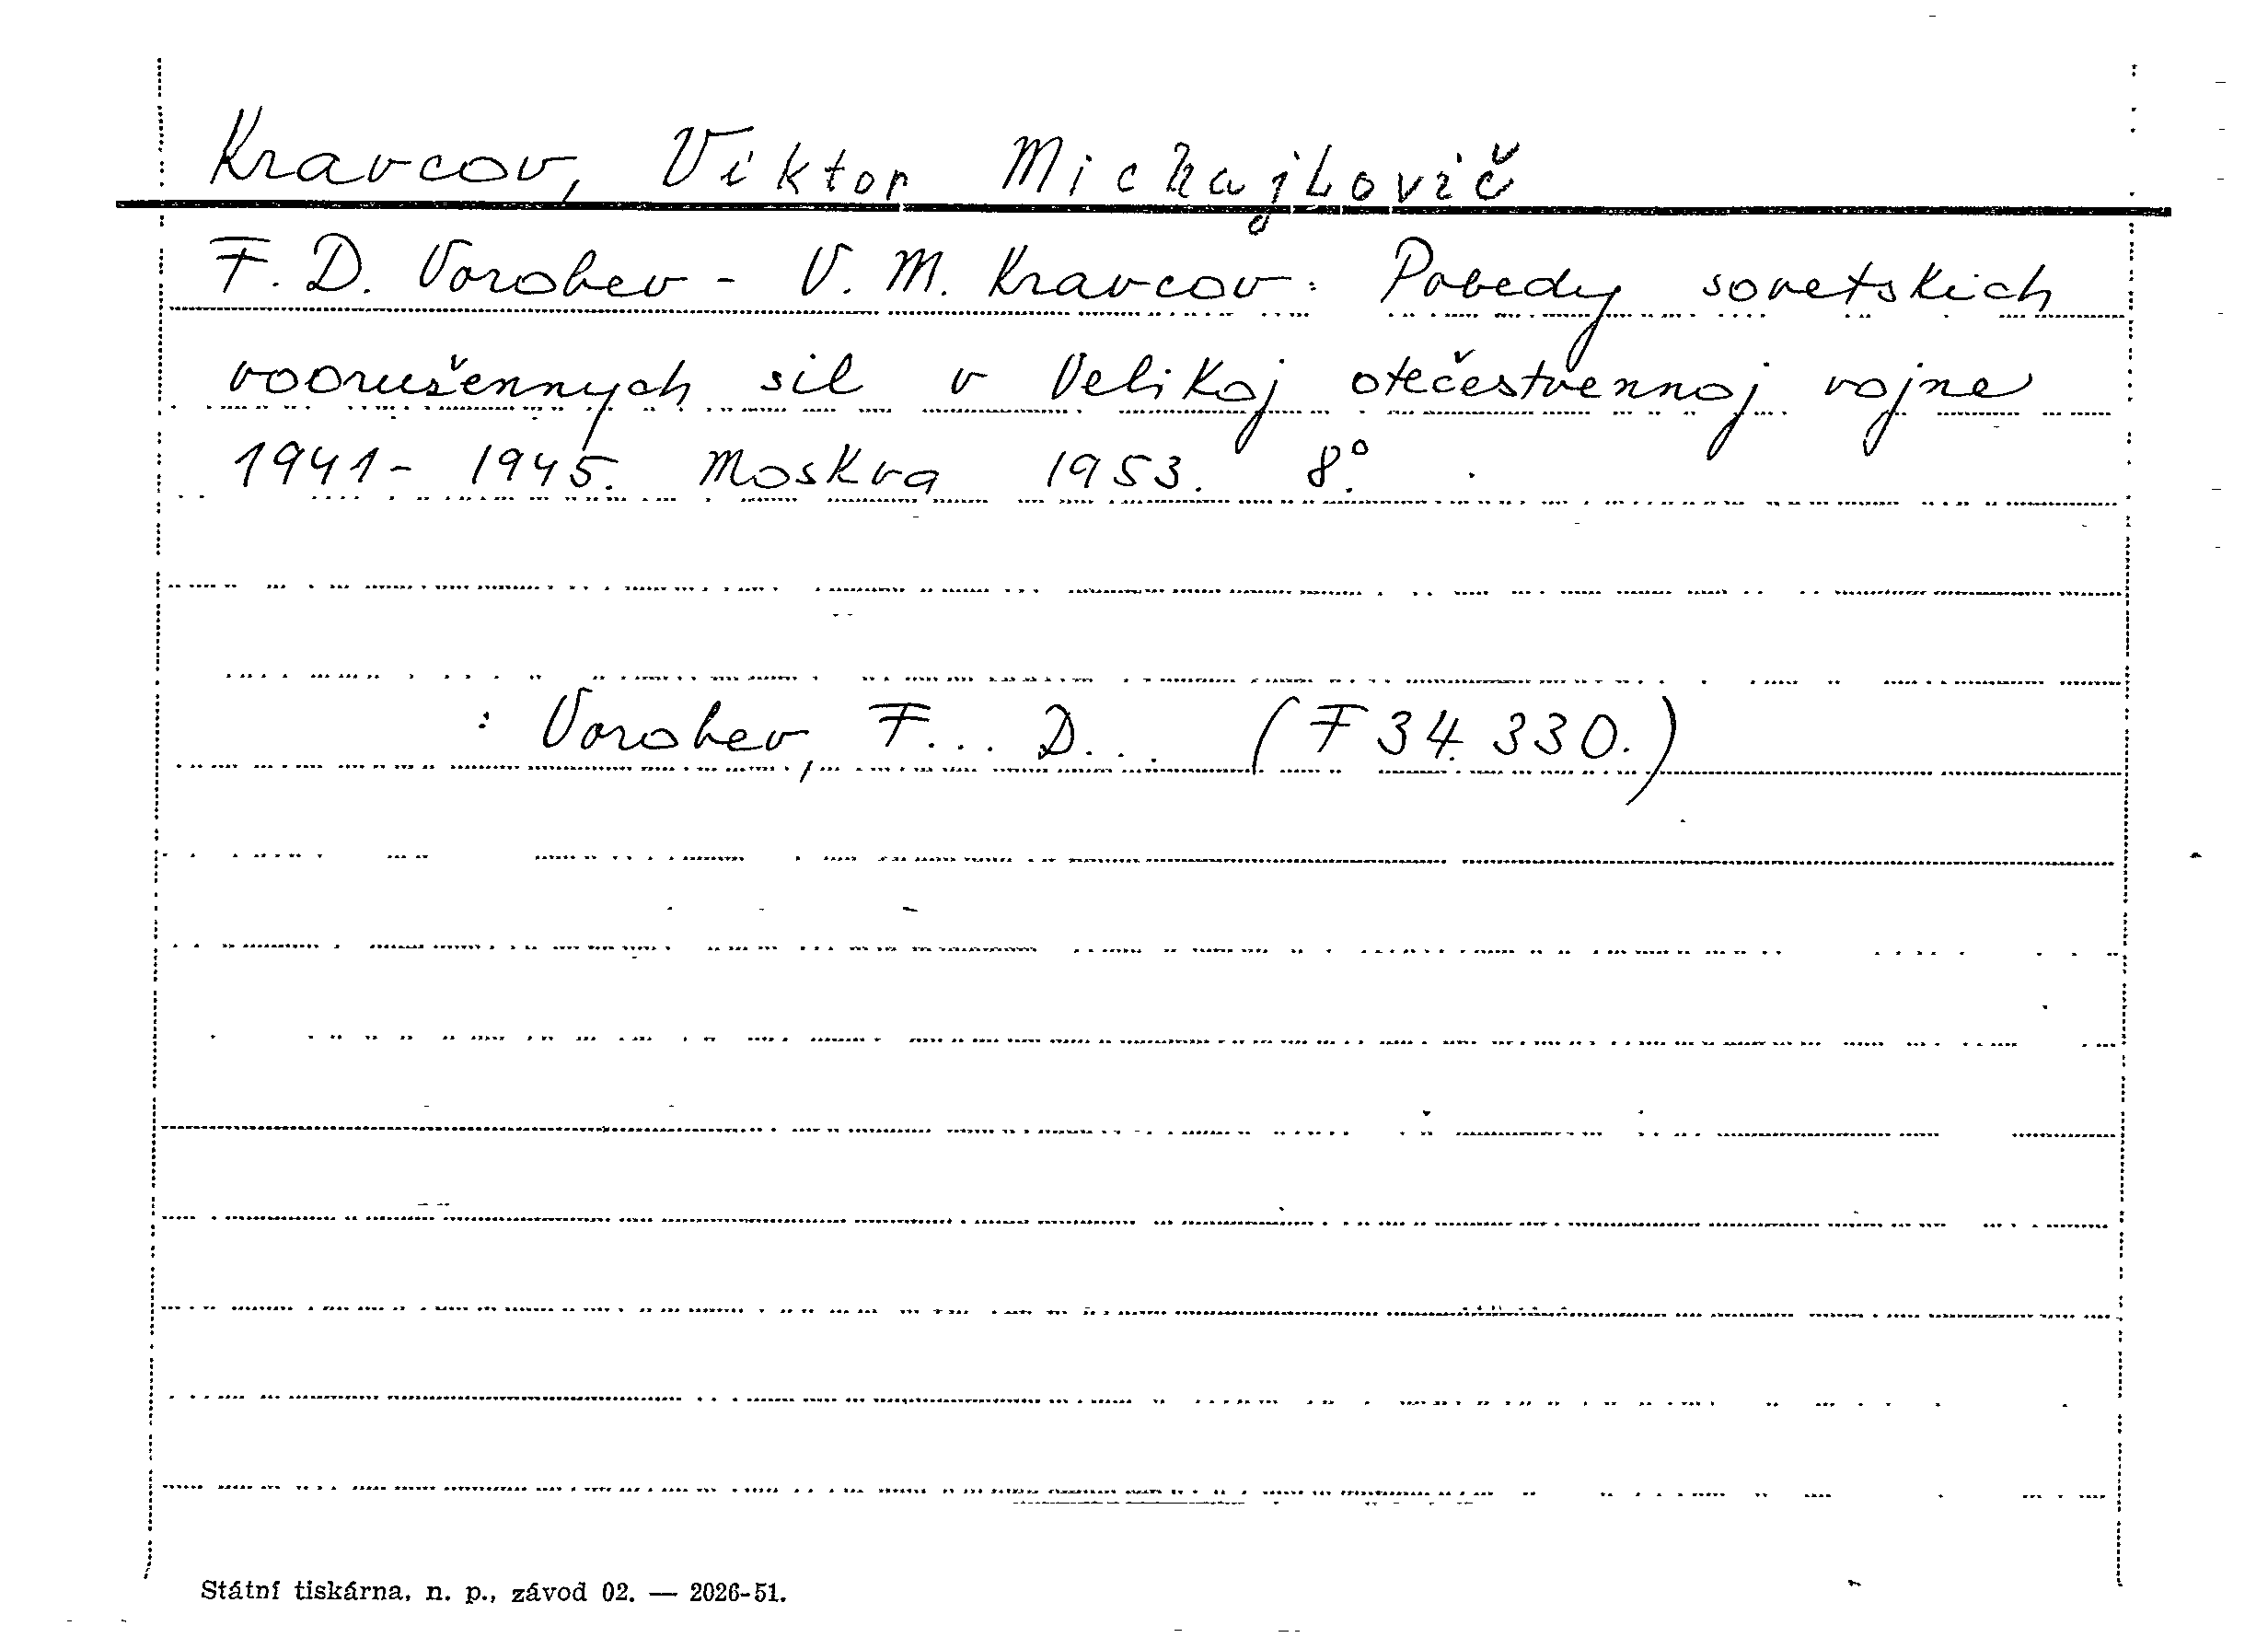 Kravcov, Viktor Michajlovič
F. D. Vorobev - V. M. Kravcov: Pobedy sovetskich
voorušennych sil v Velikoj otečestvennoj vojne
1941- 1945. Moskva 1953. 8°.
: Vorobev, F... D... (F 34.330.)
Státní tiskárna, n. p., závod 02. — 2026-51.